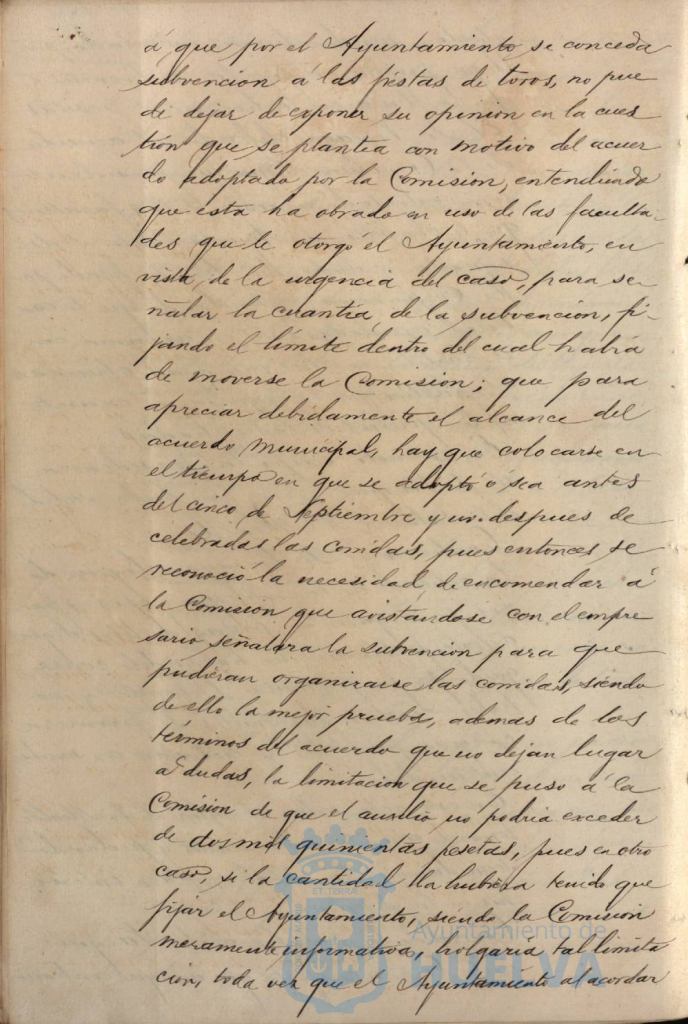 á que por el Ayuntamiento se conceda
subvencion á las fiestas de toros, no pue
de dejar de exponer su opinion en la cues
tión que se plantea con motivo del acuer
do adoptado por la Comisión, entendiendo
que esta ha obrado en uso de las faculta-
des que le otorgó el Ayuntamiento, en
vista, de la urgencia del caso, para se-
ñalar la cuantía, de la subvencion, fi-
jando el límite dentro del cual habia
de moverse la Comisión; que para
apreciar debidamente el alcance del
acuerdo municipal, hay que colocarse en
el tiempo en que se adoptó ó sea antes
del cinco de Septiembre y no despues de
celebradas las corridas, pues entonces se
reconoció la necesidad, de encomendar á
la Comision que avistandose con el empre
sario señalara la subvencion para que
pudieran organizarse las corridas, siendo
de ello la mejor prueba, ademas de los
términos del acuerdo que no dejan lugar
a dudas, la limitacion que se puso á la
Comisión de que el auxilio no podria exceder
de dos mil quinientas pesetas, pues en otro
caso, si la cantidad la hubiera tenido que
fijar el Ayuntamiento, siendo la Comisión
meramente informativa, holgaria tal limita
cion, toda vez que el Ayuntamiento al acordar
Ayuntamiento de
HUELVA